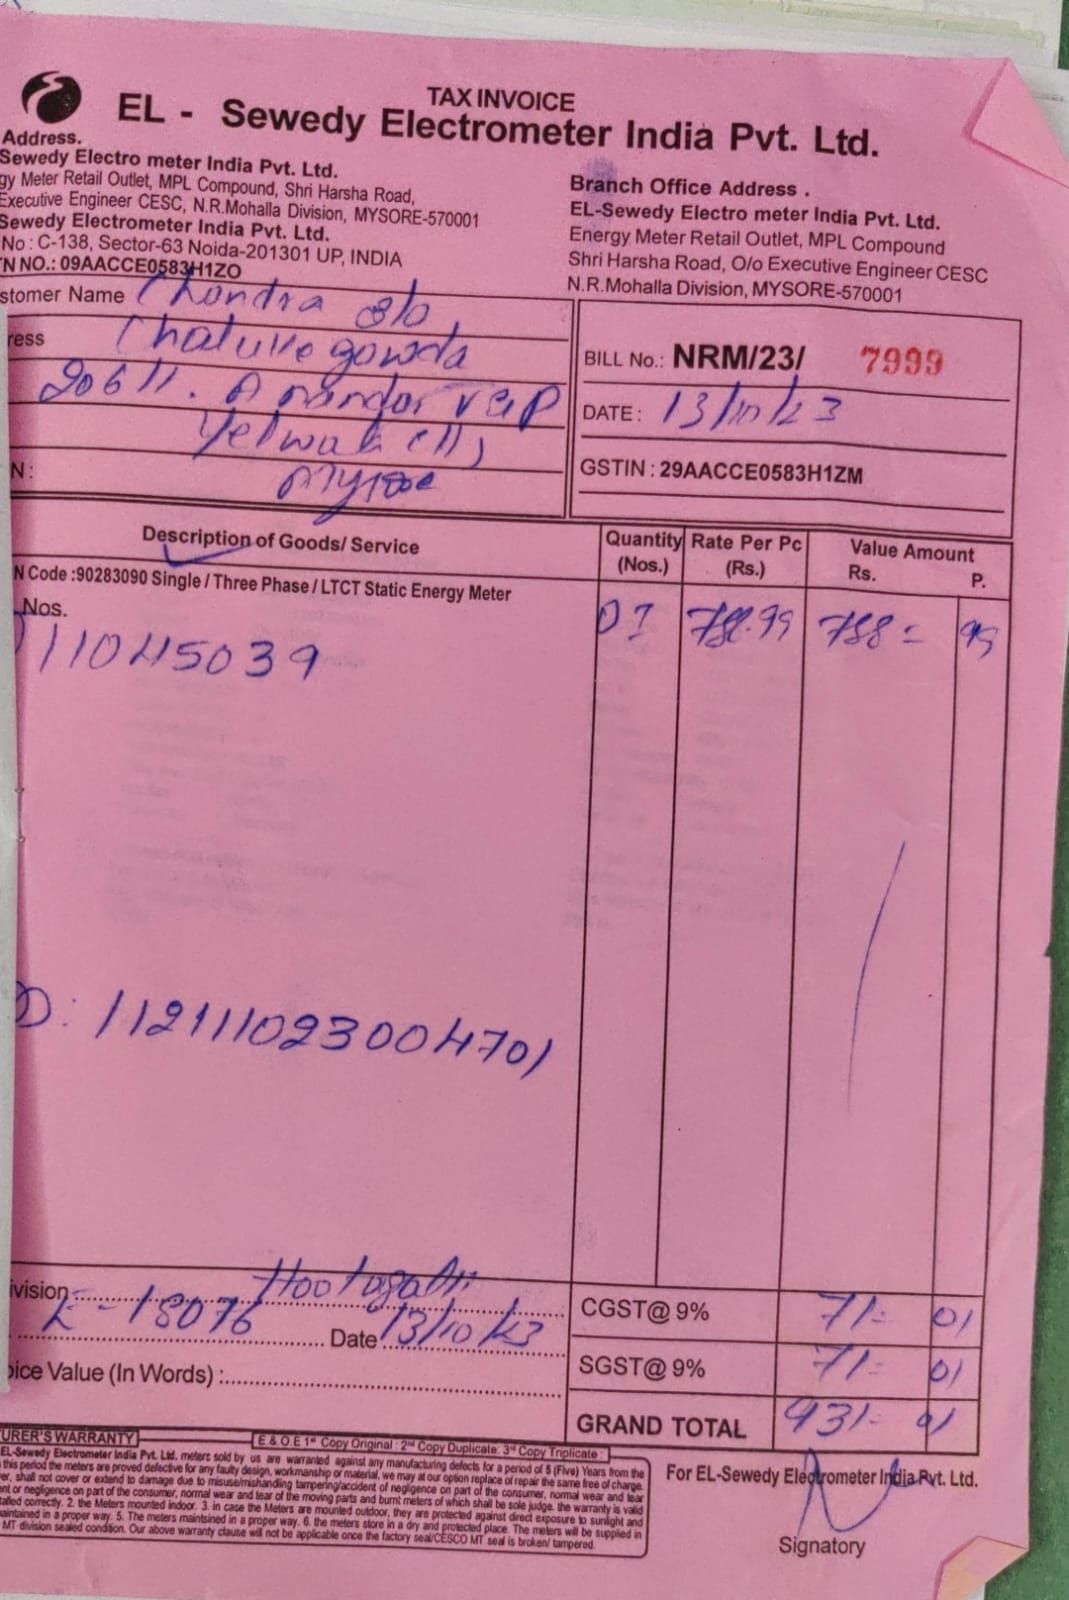 TAX INVOICE
EL - Sewedy Electrometer India Pvt. Ltd.
Address.
Sewedy Electro meter India Pvt. Ltd.
gy Meter Retail Outlet, MPL Compound, Shri Harsha Road,
Executive Engineer CESC, N.R.Mohalla Division, MYSORE-570001
Sewedy Electrometer India Pvt. Ltd.
No : C-138, Sector-63 Noida-201301 UP, INDIA
N NO.: 09AACCE0583H1ZO
Branch Office Address .
EL-Sewedy Electro meter India Pvt. Ltd.
Energy Meter Retail Outlet, MPL Compound
Shri Harsha Road, O/o Executive Engineer CESC
N.R.Mohalla Division, MYSORE-570001
stomer Name Chandra S/o
ress Chaluvegowda
206/1.
Yelwala
N : Mysore
BILL No.: NRM/23/ 7999
DATE : 13/10/23
GSTIN : 29AACCE0583H1ZM
Description of Goods/ Service Quantity (Nos.) Rate Per Pc (Rs.) Value Amount Rs. P.
N Code :90283090 Single / Three Phase / LTCT Static Energy Meter
Nos. 01 788.99 788= 99
11045039
D: 112111023004701
ivision Hootagalli
K-18076 Date 13/10/23
oice Value (In Words) :
CGST@ 9% 71= 01
SGST@ 9% 71= 01
GRAND TOTAL 931= 01
URER'S WARRANTY E.& O.E 1st Copy Original : 2nd Copy Duplicate: 3rd Copy Triplicate :
EL-Sewedy Electrometer India Pvt. Ltd. meters sold by us are warranted against any manufacturing defects for a period of 5 (Five) Years from the
this period the meters are proved defective for any faulty design, workmanship or material, we may at our option replace of repair the same free of charge.
ver, shall not cover or extend to damage due to misuse/mishandling tampering/accident of negligence on part of the consumer, normal wear and tear
ent or negligence on part of the consumer, normal wear and tear of the moving parts and burnt meters of which shall be sole judge. the warranty is valid
talled correctly. 2. the Meters mounted indoor. 3. in case the Meters are mounted outdoor, they are protected against direct exposure to sunlight and
aintained in a proper way. 5. The meters maintsined in a proper way. 6. the meters store in a dry and protected place. The meters will be supplied in
MT division sealed condition. Our above warranty clause will not be applicable once the factory seal/CESCO MT seal is broken/ tampered.
For EL-Sewedy Electrometer India Pvt. Ltd.
Signatory